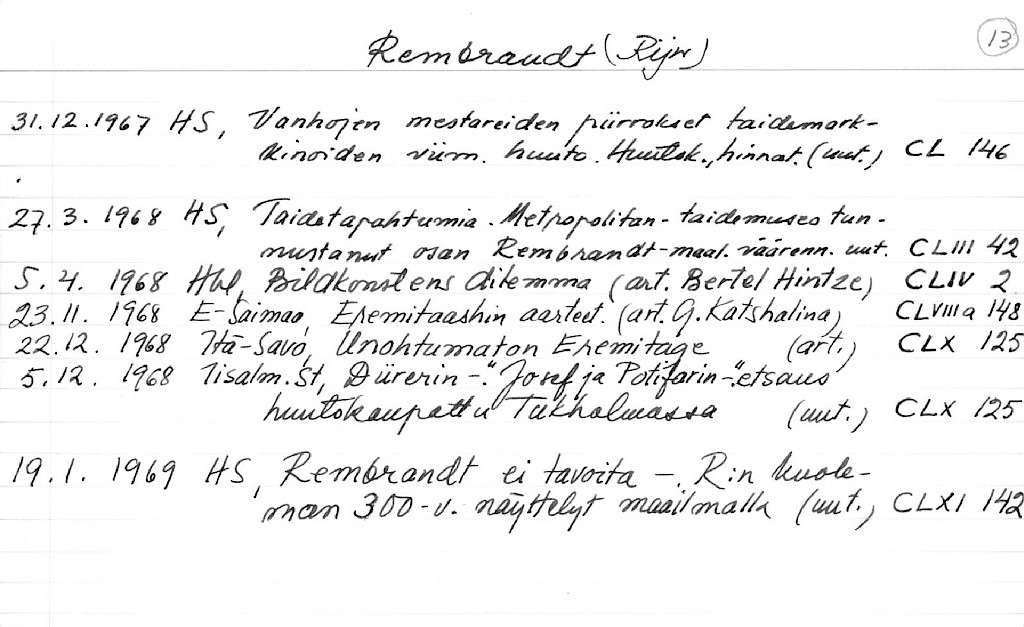 Rembrandt (Rijn)
13
31.12.1967 HS, Vanhojen mestareiden piirrokset taidemark-
kinoiden viim. huuto. Huutok., hinnat. (uut.) CL 146
27.3. 1968 HS, Taidetapahtumia. Metropolitan-taidemuseo tun-
nustanut osan Rembrandt-maal. väärenn. uut. CLIII 42
5.4. 1968 Hbl, Bildkonstens dilemma (art. Bertel Hintze) CLIV 2
23.11. 1968 E-Saimaa, Eremitaashin aarteet. (art. G. Katshalina) CLVIII a 148
22.12. 1968 Itä-Savo, Unohtumaton Eremitage (art.) CLX 125
5.12. 1968 Iisalm. St, Dürerin -." Josef ja Potifarin-" etsaus
huutokaupattu Tukholmassa (uut.) CLX 125
19.1. 1969 HS, Rembrandt ei tavoita -. R:n kuole-
man 300-v. näyttelyt maailmalla (uut.) CLXI 142